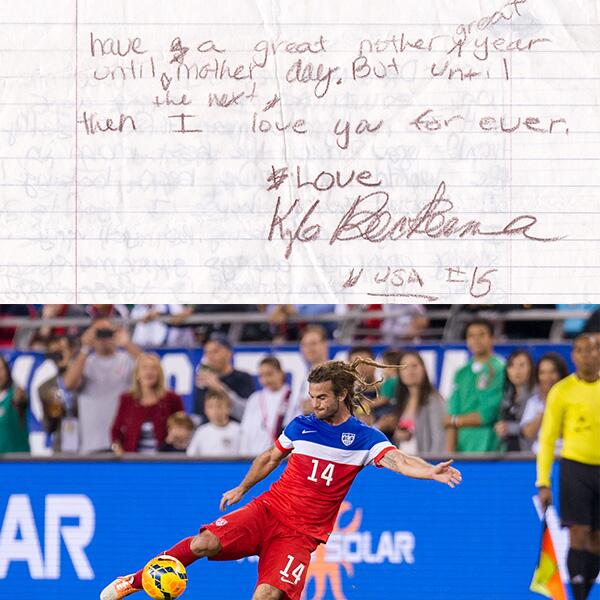 great
have a great nother year
until mother day. But until
the next
then I love you for ever.
Love
Kyle Beckerma
USA #15
AR
SOLAR
14
14